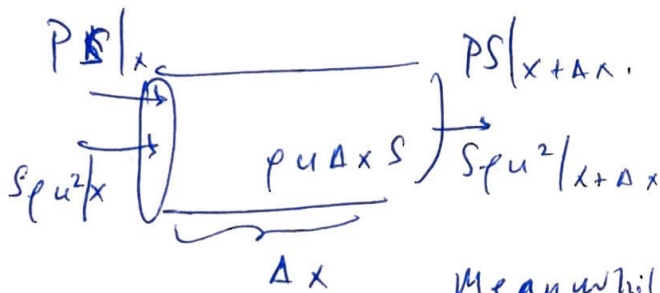 PS|x
PS|x+Δx.
ρuΔxS
Sρu²|x
Sρu²|x+Δx
Δx
Meanwhil